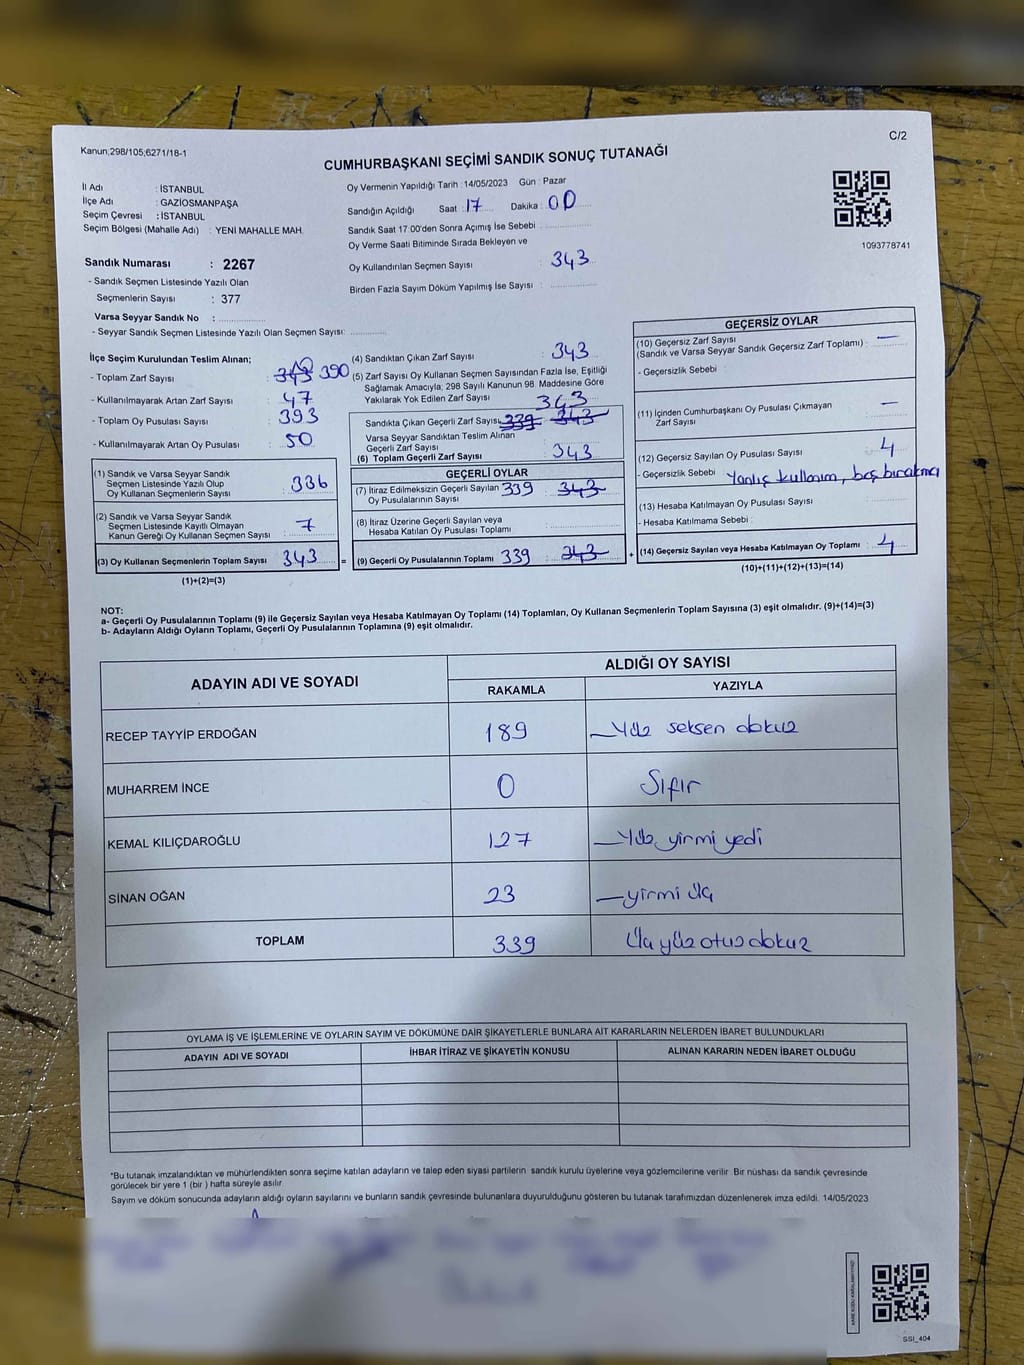 Kanun;298/105;6271/18-1
C/2
CUMHURBAŞKANI SEÇİMİ SANDIK SONUÇ TUTANAĞI
İl Adı : İSTANBUL
İlçe Adı : GAZİOSMANPAŞA
Seçim Çevresi : İSTANBUL
Seçim Bölgesi (Mahalle Adı) : YENİ MAHALLE MAH.
Sandık Numarası : 2267
- Sandık Seçmen Listesinde Yazılı Olan
Seçmenlerin Sayısı : 377
Varsa Seyyar Sandık No :
- Seyyar Sandık Seçmen Listesinde Yazılı Olan Seçmen Sayısı:
Oy Vermenin Yapıldığı Tarih : 14/05/2023 Gün : Pazar
Sandığın Açıldığı Saat : 17 Dakika : 00
Sandık Saat 17.00'den Sonra Açımış İse Sebebi :
Oy Verme Saati Bitiminde Sırada Bekleyen ve
Oy Kullandırılan Seçmen Sayısı : 343
Birden Fazla Sayım Döküm Yapılmış İse Sayısı :
1093778741
İlçe Seçim Kurulundan Teslim Alınan;
- Toplam Zarf Sayısı : 343 390
- Kullanılmayarak Artan Zarf Sayısı : 47
- Toplam Oy Pusulası Sayısı : 393
- Kullanılmayarak Artan Oy Pusulası : 50
(1) Sandık ve Varsa Seyyar Sandık
Seçmen Listesinde Yazılı Olup
Oy Kullanan Seçmenlerin Sayısı : 336
(2) Sandık ve Varsa Seyyar Sandık
Seçmen Listesinde Kayıtlı Olmayan
Kanun Gereği Oy Kullanan Seçmen Sayısı : 7
(3) Oy Kullanan Seçmenlerin Toplam Sayısı : 343 =
(1)+(2)=(3)
(4) Sandıktan Çıkan Zarf Sayısı : 343
(5) Zarf Sayısı Oy Kullanan Seçmen Sayısından Fazla İse, Eşitliği
Sağlamak Amacıyla; 298 Sayılı Kanunun 98. Maddesine Göre
Yakılarak Yok Edilen Zarf Sayısı : 343
Sandıkta Çıkan Geçerli Zarf Sayısı : 339 343
Varsa Seyyar Sandıktan Teslim Alınan
Geçerli Zarf Sayısı
(6) Toplam Geçerli Zarf Sayısı : 343
GEÇERLİ OYLAR
(7) İtiraz Edilmeksizin Geçerli Sayılan 339 343
Oy Pusulalarının Sayısı
(8) İtiraz Üzerine Geçerli Sayılan veya
Hesaba Katılan Oy Pusulası Toplamı :
(9) Geçerli Oy Pusulalarının Toplamı 339 343 +
GEÇERSİZ OYLAR
(10) Geçersiz Zarf Sayısı
(Sandık ve Varsa Seyyar Sandık Geçersiz Zarf Toplamı) : —
- Geçersizlik Sebebi :
(11) İçinden Cumhurbaşkanı Oy Pusulası Çıkmayan
Zarf Sayısı : —
(12) Geçersiz Sayılan Oy Pusulası Sayısı : 4
- Geçersizlik Sebebi Yanlış kullanım, boş bırakma
(13) Hesaba Katılmayan Oy Pusulası Sayısı :
- Hesaba Katılmama Sebebi :
(14) Geçersiz Sayılan veya Hesaba Katılmayan Oy Toplamı : 4
(10)+(11)+(12)+(13)=(14)
NOT:
a- Geçerli Oy Pusulalarının Toplamı (9) ile Geçersiz Sayılan veya Hesaba Katılmayan Oy Toplamı (14) Toplamları, Oy Kullanan Seçmenlerin Toplam Sayısına (3) eşit olmalıdır. (9)+(14)=(3)
b- Adayların Aldığı Oyların Toplamı, Geçerli Oy Pusulalarının Toplamına (9) eşit olmalıdır.
ADAYIN ADI VE SOYADI
ALDIĞI OY SAYISI
RAKAMLA YAZIYLA
RECEP TAYYİP ERDOĞAN 189 Yüz seksen dokuz
MUHARREM İNCE 0 Sıfır
KEMAL KILIÇDAROĞLU 127 Yüz yirmi yedi
SİNAN OĞAN 23 yirmi üç
TOPLAM 339 Üç yüz otuz dokuz
OYLAMA İŞ VE İŞLEMLERİNE VE OYLARIN SAYIM VE DÖKÜMÜNE DAİR ŞİKAYETLERLE BUNLARA AİT KARARLARIN NELERDEN İBARET BULUNDUKLARI
ADAYIN ADI VE SOYADI İHBAR İTİRAZ VE ŞİKAYETİN KONUSU ALINAN KARARIN NEDEN İBARET OLDUĞU
*Bu tutanak imzalandıktan ve mühürlendikten sonra seçime katılan adayların ve talep eden siyasi partilerin sandık kurulu üyelerine veya gözlemcilerine verilir. Bir nüshası da sandık çevresinde
görülecek bir yere 1 (bir ) hafta süreyle asılır.
Sayım ve döküm sonucunda adayların aldığı oyların sayılarını ve bunların sandık çevresinde bulunanlara duyurulduğunu gösteren bu tutanak tarafımızdan düzenlenerek imza edildi. 14/05/2023
SSI_404